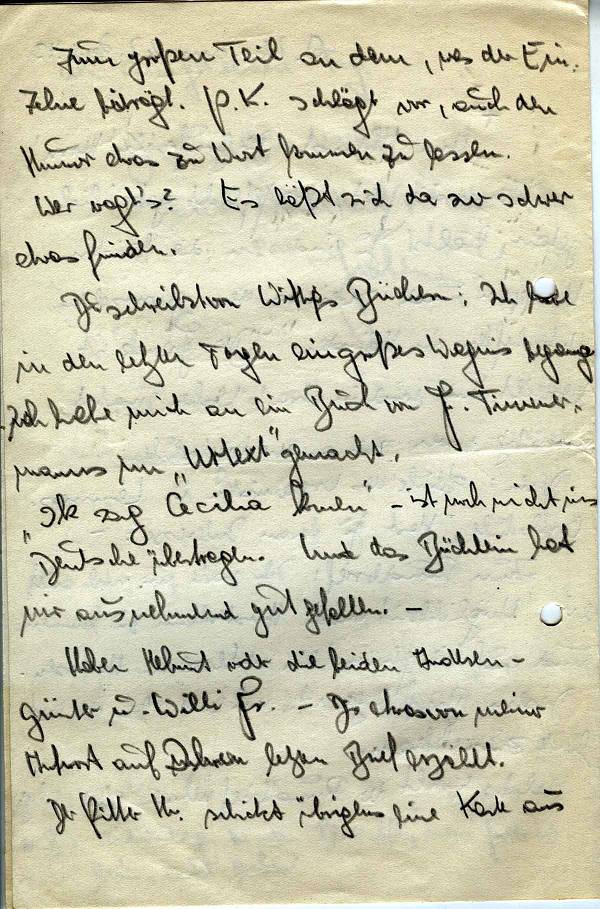 Zum großen Teil an dem, was der Ein-
zelne beiträgt. P.K. schlägt vor, auch den
Humor etwas zu Wort kommen zu lassen.
Wer wagt's? Es läßt sich da nur schwer
etwas finden.
Du schreibst von Wittigs Büchern; Ich habe
in den letzten Tagen ein großes Wagnis
Ich habe mich an ein Buch von F. Timmer-
manns im „Urtext" gemacht.
„Ik zag Cecilia komen" – ist noch nicht ins
Deutsche übertragen. Und das Büchlein hat
mir ausnehmend gut gefallen. –
Haben Helmut oder die beiden
Günter u. Willi Fr. – Dir etwas von meiner
Antwort auf Deinen letzten Brief erzählt.
Der schickt übrigens eine Karte aus